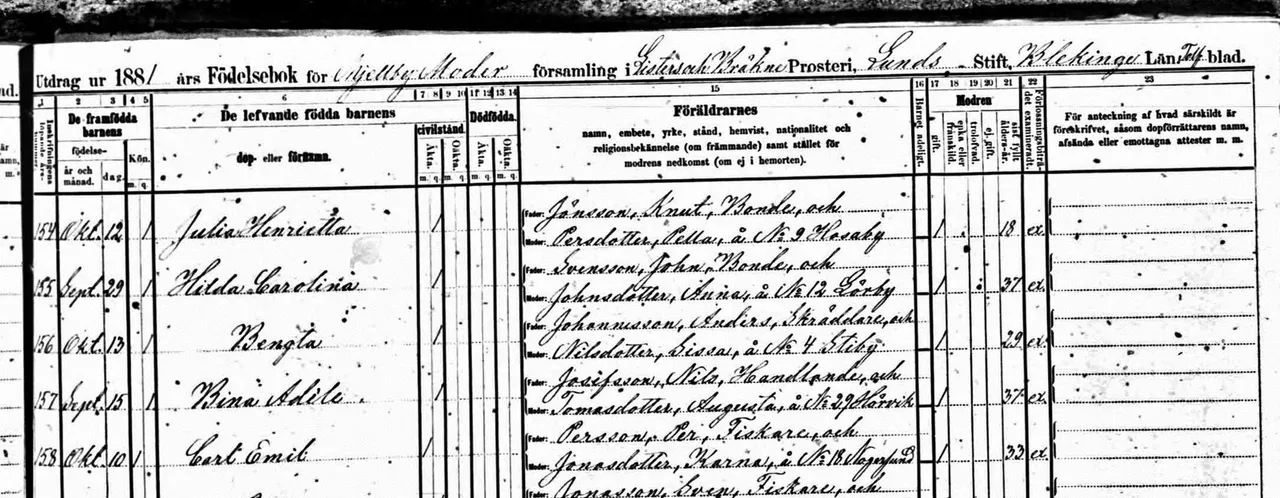 Utdrag ur 1881 års Födelsebok för Mjellby Moder församling i Listers och Bräkne Prosteri, Lunds Stift, Blekinge Län. Tolf blad.
1 2 3 4 5 6 7 8 9 10 11 12 13 14 15 16 17 18 19 20 21 22 23
Inskrifningens löpande års-nummer.
De framfödda barnens
födelse-
år och månad. dag.
Kön.
m. q.
De lefvande födda barnens
dop- eller förnamn.
civilstånd.
Äkta. Oäkta.
m. q. m. q.
Dödfödda.
Äkta. Oäkta.
m. q. m. q.
Föräldrarnes
namn, embete, yrke, stånd, hemvist, nationalitet och
religionsbekännelse (om främmande) samt stället för
modrens nedkomst (om ej i hemorten).
Barnet adeligt.
Modren
gift. enka eller frånskild. trolofvad. ej gift. sist fyllt ålders-år.
Förlossningsbiträdet examineradt.
För anteckning af hvad särskildt är
föreskrifvet, såsom dopförrättarens namn,
afsända eller emottagna attester m. m.
Fader: Jönsson, Knut, Bonde, och
154 Okt. 12 1 Julia Henrietta 1 Moder: Persdotter, Pella, å No 9 Hosaby 1 18 ex
Fader: Svensson, John, Bonde, och
155 Sept. 29 1 Hilda Carolina 1 Moder: Johnsdotter, Anna, å No 12 Lörby 1 37 ex.
Fader: Johannisson, Anders, Skräddare, och
156 Okt. 13 1 Bengta 1 Moder: Nilsdotter, Sissa, å No 4 Stiby 1 29 ex.
Fader: Josifsson, Nils, Handlande, och
157 Sept. 15 1 Bina Adile 1 Moder: Tomasdotter, Augusta, å No 29 Hörvik 1 37 ex.
Fader: Persson, Per, Fiskare, och
158 Okt. 10 1 Carl Emil 1 Moder: Jonasdotter, Karna, å No 18 Nogersund 1 33 ex.
Jonasson, Sven, Fiskare, och